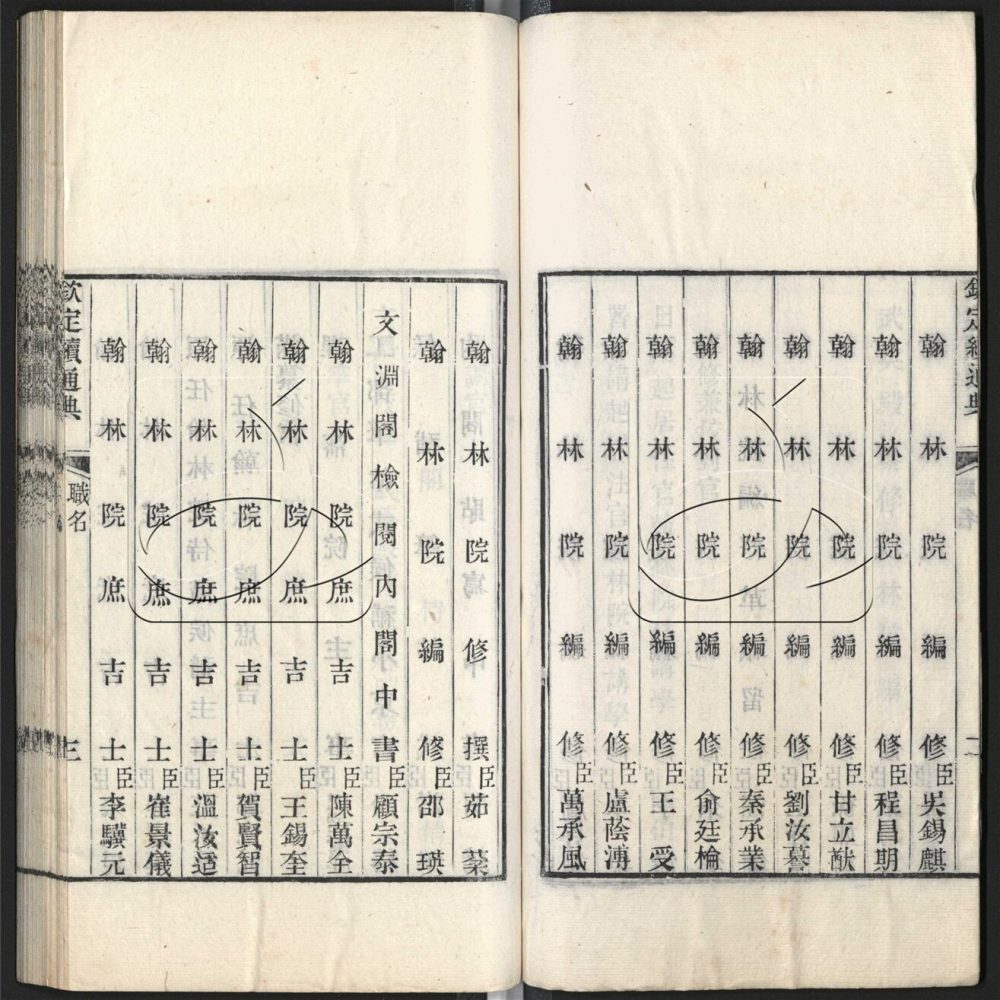 翰林院編修臣吳錫麒
翰林院編修臣程昌期
翰林院編修臣甘立猷
翰林院編修臣劉汝謩
翰林院編修臣秦承業
翰林院編修臣俞廷棆
翰林院編修臣王受
翰林院編修臣盧蔭溥
翰林院編修臣萬承風
翰林院修撰臣茹棻
翰林院編修臣邵瑛
文淵閣檢閱內閣中書臣顧宗泰
翰林院庶吉士臣陳萬全
翰林院庶吉士臣王錫奎
翰林院庶吉士臣賀賢智
翰林院庶吉士臣溫汝适
翰林院庶吉士臣崔景儀
翰林院庶吉士臣李驥元
欽定續通典
職名
三